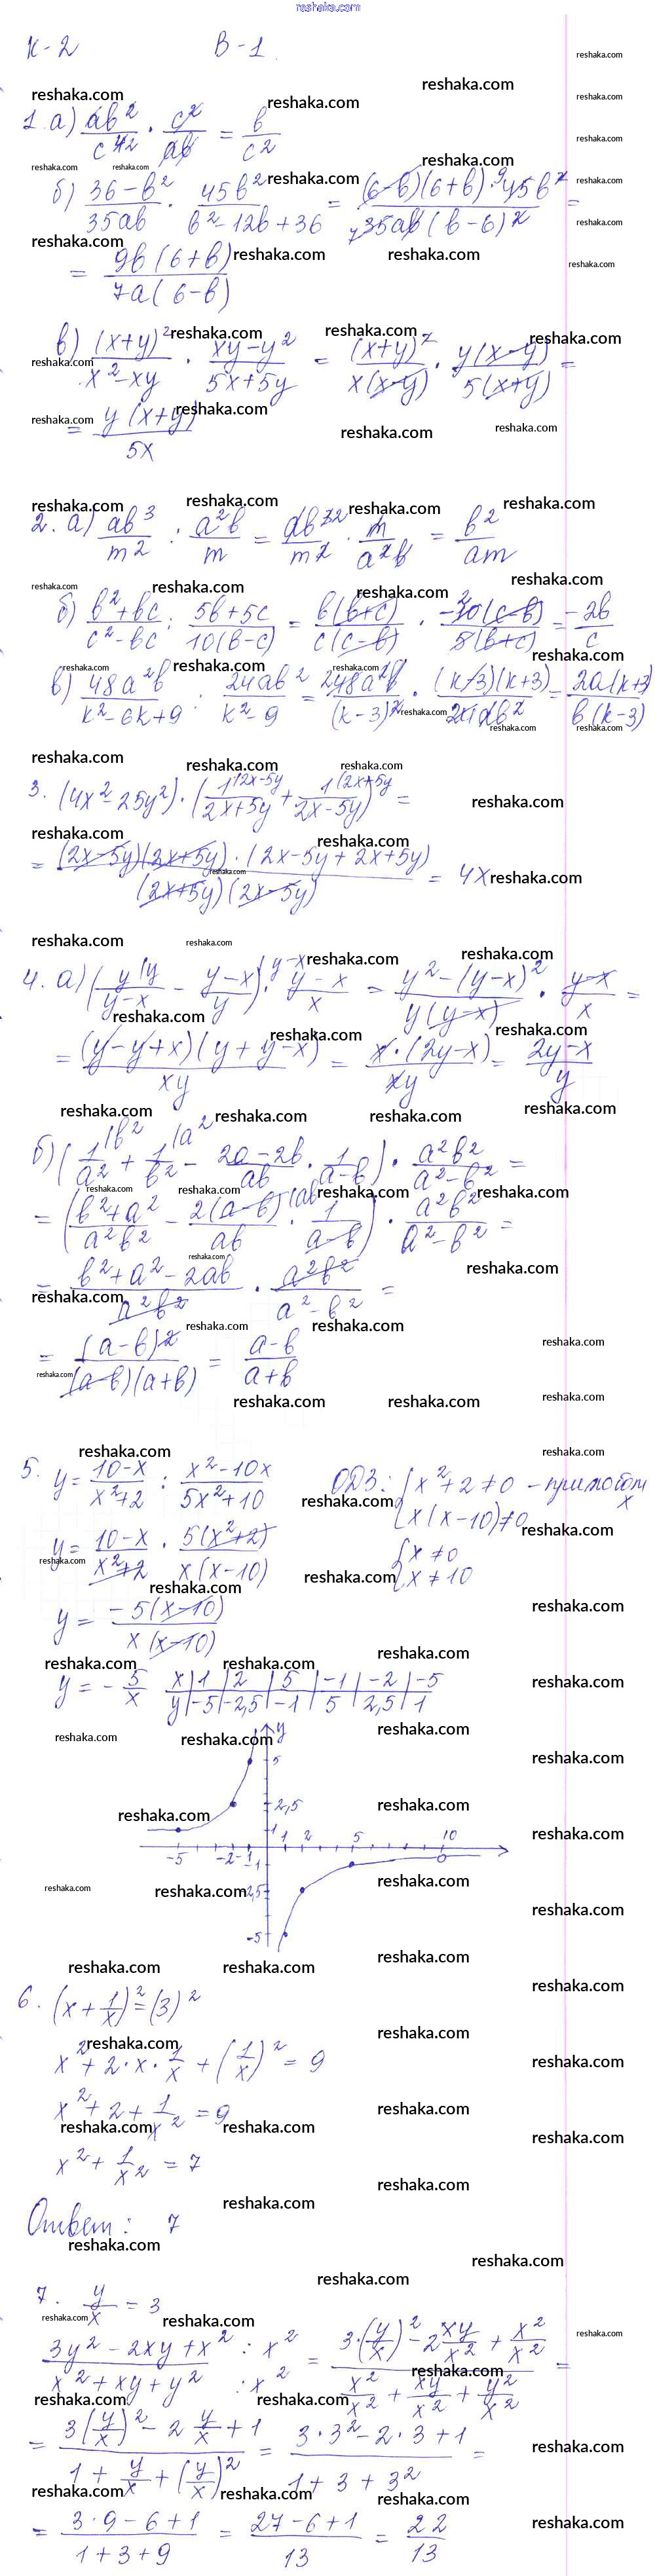 reshaka.com
К-2 В-1
1. а) ab²/c⁴ · c²/ab = b/c²
б) (36-b²)/35ab · 45b²/(b²-12b+36) = (6-b)(6+b)·45b²/35ab(b-6)² =
= 9b(6+b)/7a(6-b)
в) (x+y)²/(x²-xy) · (xy-y²)/(5x+5y) = (x+y)²/x(x-y) · y(x-y)/5(x+y) =
= y(x+y)/5x
2. а) ab³/m² : a²b/m = ab³/m² · m/a²b = b²/am
б) (b²+bc)/(c²-bc) : (5b+5c)/10(b-c) = b(b+c)/c(c-b) · -10(c-b)/5(b+c) = -2b/c
в) 48a²b/(k²-6k+9) : 24ab²/(k²-9) = 48a²b/(k-3)² · (k-3)(k+3)/24ab² = 2a(k+3)/b(k-3)
3. (4x²-25y²)·(1/(2x+5y) + 1/(2x-5y)) =
= (2x-5y)(2x+5y)·(2x-5y+2x+5y)/(2x+5y)(2x-5y) = 4x
4. а) (y/(y-x) - (y-x)/y) · (y-x)/x = (y²-(y-x)²)/y(y-x) · (y-x)/x =
= (y-y+x)(y+y-x)/xy = x·(2y-x)/xy = (2y-x)/y
б) (1/a² + 1/b² - (2a-2b)/ab · 1/(a-b)) · a²b²/(a²-b²) =
= ((b²+a²)/a²b² - 2(a-b)/ab · 1/(a-b)) · a²b²/(a²-b²) =
= (b²+a²-2ab)/a²b² · a²b²/(a²-b²) =
= (a-b)²/(a-b)(a+b) = (a-b)/(a+b)
5. y = (10-x)/(x²+2) : (x²-10x)/(5x²+10) ОДЗ: { x²+2≠0 - при любом x
x(x-10)≠0
y = (10-x)/(x²+2) · 5(x²+2)/x(x-10) { x≠0
x≠10
y = -5(x-10)/x(x-10)
y = -5/x x | 1 | 2 | 5 | -1 | -2 | -5
y | -5 | -2,5 | -1 | 5 | 2,5 | 1
y
5
2,5
1
-5 -2 -1 1 2 5 10
-1
2,5
-5
6. (x+1/x)² = (3)²
x²+2·x·1/x+(1/x)² = 9
x²+2+1/x² = 9
x²+1/x² = 7
Ответ: 7
7. y/x = 3
(3y²-2xy+x²)/(x²+xy+y²) :x² :x² = (3·(y/x)²-2xy/x²+x²/x²)/(x²/x²+xy/x²+y²/x²) =
= (3(y/x)²-2y/x+1)/(1+y/x+(y/x)²) = (3·3²-2·3+1)/(1+3+3²) =
= (3·9-6+1)/(1+3+9) = (27-6+1)/13 = 22/13